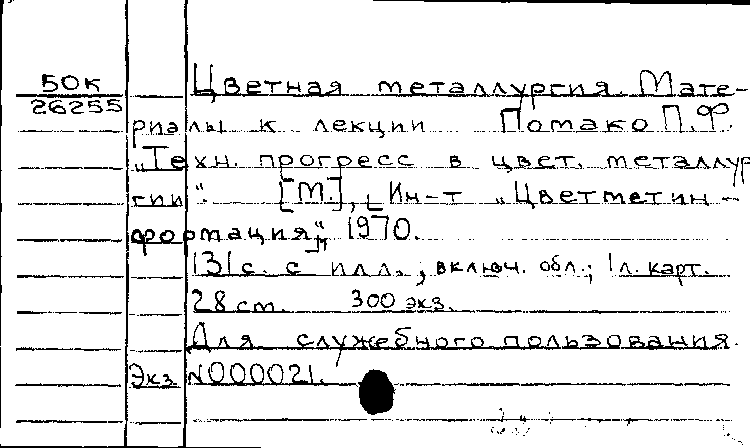 БОК Цветная металлургия. Мате-
26255
риалы к лекции Ломако П.Ф.
„Техн. прогресс в цвет. металлур
гии". [М.], [Ин-т „Цветметин-
формация"], 1970.
131 с. с илл., включ. обл.; 1 л. карт.
28 cm. 300 экз.
Для служебного пользования.
Экз N000021.